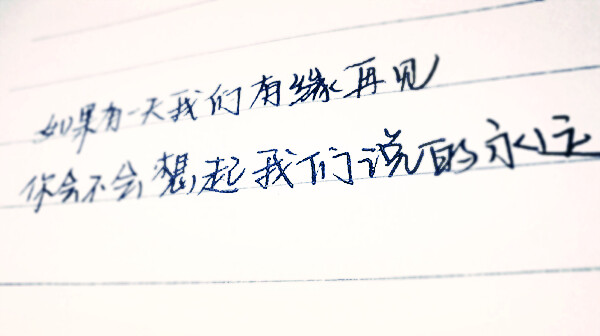 如果有一天我们有缘再见
你会不会想起我们说的永远